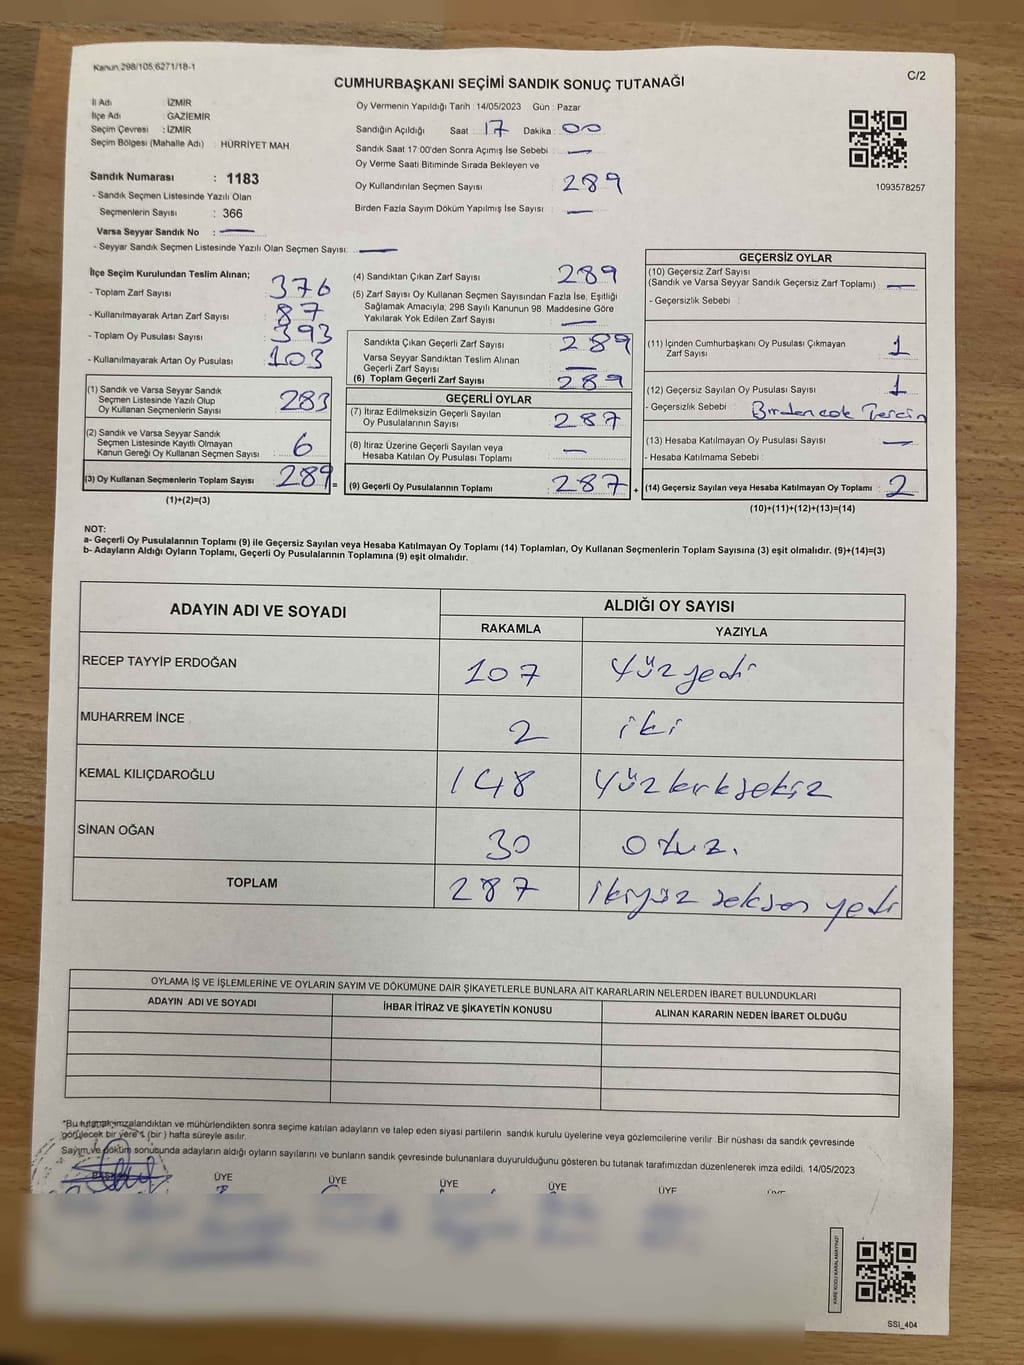 Kanun.298/105,6271/18-1
C/2
CUMHURBAŞKANI SEÇİMİ SANDIK SONUÇ TUTANAĞI
İl Adı İZMİR
İlçe Adı GAZİEMİR
Seçim Çevresi : İZMİR
Seçim Bölgesi (Mahalle Adı) : HÜRRİYET MAH.
Sandık Numarası : 1183
- Sandık Seçmen Listesinde Yazılı Olan
Seçmenlerin Sayısı : 366
Varsa Seyyar Sandık No :
- Seyyar Sandık Seçmen Listesinde Yazılı Olan Seçmen Sayısı:
Oy Vermenin Yapıldığı Tarih : 14/05/2023 Gün : Pazar
Sandığın Açıldığı Saat 17 Dakika 00
Sandık Saat 17:00'den Sonra Açımış İse Sebebi :
Oy Verme Saati Bitiminde Sırada Bekleyen ve
Oy Kullandırılan Seçmen Sayısı 289
Birden Fazla Sayım Döküm Yapılmış İse Sayısı :
1093578257
İlçe Seçim Kurulundan Teslim Alınan;
- Toplam Zarf Sayısı : 376
- Kullanılmayarak Artan Zarf Sayısı : 87
- Toplam Oy Pusulası Sayısı : 393
- Kullanılmayarak Artan Oy Pusulası : 103
(1) Sandık ve Varsa Seyyar Sandık
Seçmen Listesinde Yazılı Olup
Oy Kullanan Seçmenlerin Sayısı : 283
(2) Sandık ve Varsa Seyyar Sandık
Seçmen Listesinde Kayıtlı Olmayan
Kanun Gereği Oy Kullanan Seçmen Sayısı : 6
(3) Oy Kullanan Seçmenlerin Toplam Sayısı : 289 =
(1)+(2)=(3)
(4) Sandıktan Çıkan Zarf Sayısı : 289
(5) Zarf Sayısı Oy Kullanan Seçmen Sayısından Fazla İse, Eşitliği
Sağlamak Amacıyla; 298 Sayılı Kanunun 98. Maddesine Göre
Yakılarak Yok Edilen Zarf Sayısı :
Sandıkta Çıkan Geçerli Zarf Sayısı : 289
Varsa Seyyar Sandıktan Teslim Alınan
Geçerli Zarf Sayısı :
(6) Toplam Geçerli Zarf Sayısı : 289
GEÇERLİ OYLAR
(7) İtiraz Edilmeksizin Geçerli Sayılan
Oy Pusulalarının Sayısı : 287
(8) İtiraz Üzerine Geçerli Sayılan veya
Hesaba Katılan Oy Pusulası Toplamı :
(9) Geçerli Oy Pusulalarının Toplamı : 287 +
GEÇERSİZ OYLAR
(10) Geçersiz Zarf Sayısı
(Sandık ve Varsa Seyyar Sandık Geçersiz Zarf Toplamı) :
- Geçersizlik Sebebi :
(11) İçinden Cumhurbaşkanı Oy Pusulası Çıkmayan
Zarf Sayısı : 1
(12) Geçersiz Sayılan Oy Pusulası Sayısı : 1
- Geçersizlik Sebebi : Birden çok Tercih
(13) Hesaba Katılmayan Oy Pusulası Sayısı :
- Hesaba Katılmama Sebebi :
(14) Geçersiz Sayılan veya Hesaba Katılmayan Oy Toplamı : 2
(10)+(11)+(12)+(13)=(14)
NOT:
a- Geçerli Oy Pusulalarının Toplamı (9) ile Geçersiz Sayılan veya Hesaba Katılmayan Oy Toplamı (14) Toplamları, Oy Kullanan Seçmenlerin Toplam Sayısına (3) eşit olmalıdır. (9)+(14)=(3)
b- Adayların Aldığı Oyların Toplamı, Geçerli Oy Pusulalarının Toplamına (9) eşit olmalıdır.
ADAYIN ADI VE SOYADI ALDIĞI OY SAYISI
RAKAMLA YAZIYLA
RECEP TAYYİP ERDOĞAN 107 Yüz yedi
MUHARREM İNCE 2 iki
KEMAL KILIÇDAROĞLU 148 Yüz kırk sekiz
SİNAN OĞAN 30 Otuz.
TOPLAM 287 ikiyüz seksen yedi
OYLAMA İŞ VE İŞLEMLERİNE VE OYLARIN SAYIM VE DÖKÜMÜNE DAİR ŞİKAYETLERLE BUNLARA AİT KARARLARIN NELERDEN İBARET BULUNDUKLARI
ADAYIN ADI VE SOYADI İHBAR İTİRAZ VE ŞİKAYETİN KONUSU ALINAN KARARIN NEDEN İBARET OLDUĞU
"Bu tutanak imzalandıktan ve mühürlendikten sonra seçime katılan adayların ve talep eden siyasi partilerin sandık kurulu üyelerine veya gözlemcilerine verilir. Bir nüshası da sandık çevresinde
görülecek bir yere 1 (bir ) hafta süreyle asılır.
Sayım ve döküm sonucunda adayların aldığı oyların sayılarını ve bunların sandık çevresinde bulunanlara duyurulduğunu gösteren bu tutanak tarafımızdan düzenlenerek imza edildi. 14/05/2023
ÜYE ÜYE ÜYE ÜYE ÜYE
KARE KODU KARALAMAYINIZ!
SSI_404